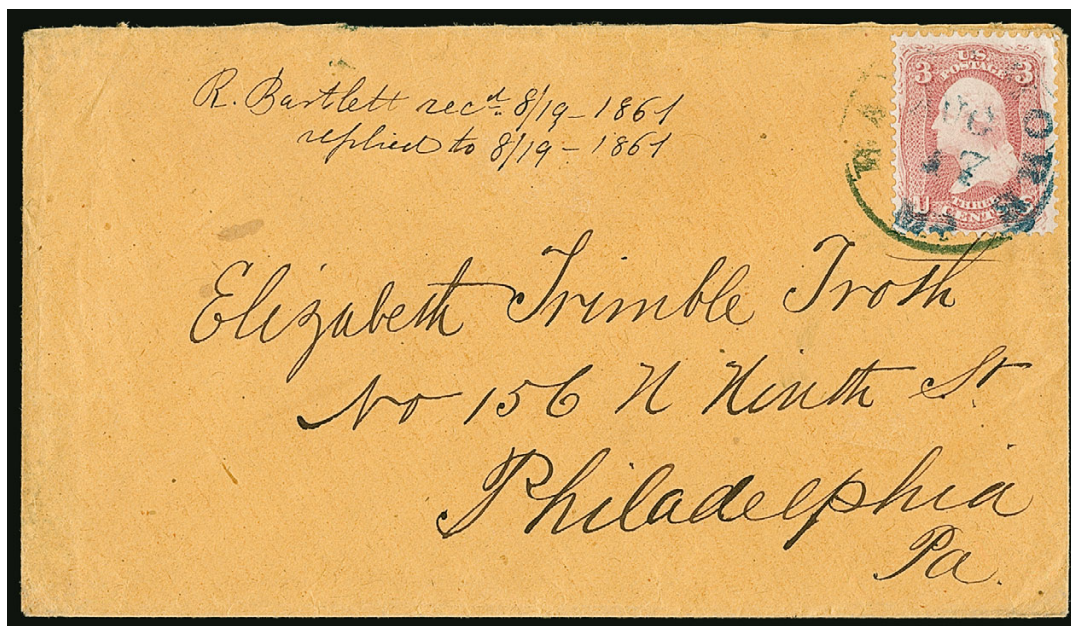 R. Bartlett recd. 8/19 - 1861
replied to 8/19 - 1861
3 U.S. POSTAGE 3
AUG
17
U THREE CENTS
Elizabeth Trimble Troth
No 156 N Ninth St
Philadelphia
Pa.